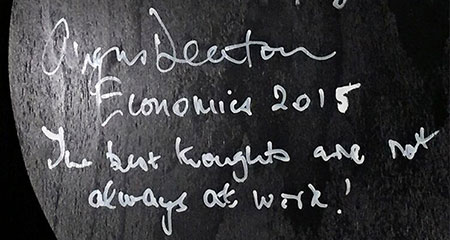 Angus Deaton
Economics 2015
The best thoughts are not
always at work!